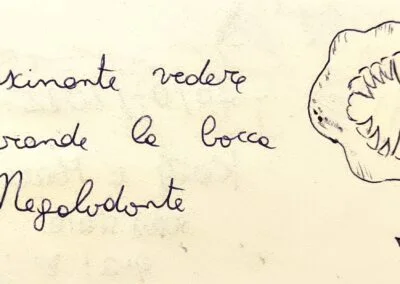 scinante vedere
rande la bocca
Megalodonte